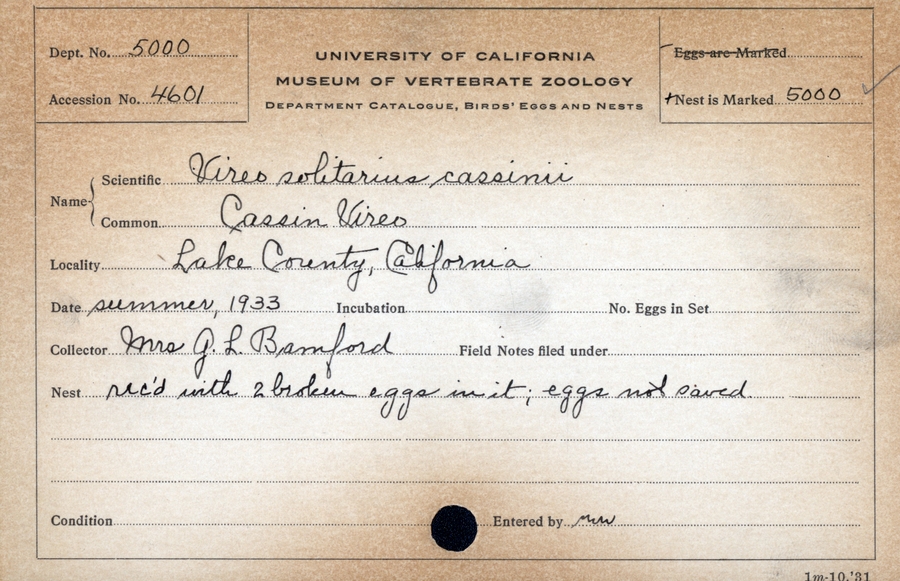 Dept. No. 5000
Accession No. 4601
UNIVERSITY OF CALIFORNIA
MUSEUM OF VERTEBRATE ZOOLOGY
DEPARTMENT CATALOGUE, BIRDS' EGGS AND NESTS
Eggs are Marked
+Nest is Marked 5000 ✓
Name { Scientific Vireo solitarius cassinii
Common Cassin Vireo
Locality Lake County, California
Date summer, 1933 Incubation No. Eggs in Set
Collector Mrs G. L. Bamford Field Notes filed under
Nest rec'd with 2 broken eggs in it; eggs not saved
Condition Entered by
1m-10,'31